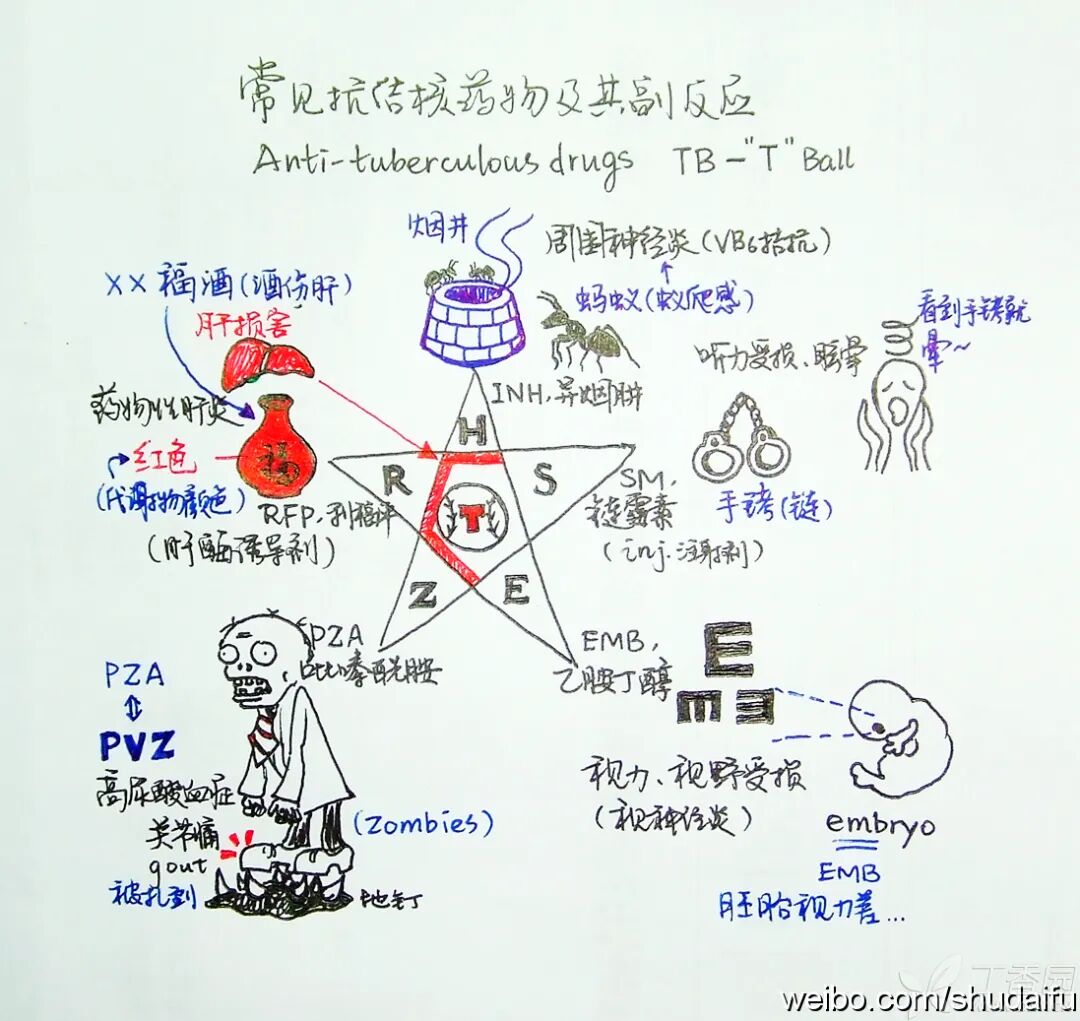 常见抗结核药物及其副反应
Anti-tuberculous drugs TB-"T" Ball
烟井
周围神经炎(VB6拮抗)
蚂蚁(蚁爬感)
INH,异烟肼
××福酒(酒伤肝)
肝损害
药物性肝炎
红色
(代谢物颜色)
福
RFP,利福平
(肝酶诱导剂)
看到手铐就
晕~
听力受损、眩晕
手铐(链)
SM,
链霉素
(inj.注射剂)
H
R
S
T
Z
E
PZA
吡嗪酰胺
PZA
PVZ
高尿酸血症
关节痛
gout
被扎到
地钉
(Zombies)
EMB,
乙胺丁醇
E
m
视力、视野受损
(视神经炎)
embryo
EMB
胚胎视力差...
丁香园
weibo.com/shudaifu